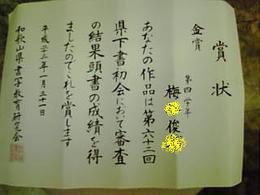 賞状
金賞
第四学年
梅 俊
あなたの作品は第六十二回
県下書初会において審査
の結果頭書の成績を得
ましたのでこれを賞します
平成二三年一月三十一日
和歌山県書写教育研究会